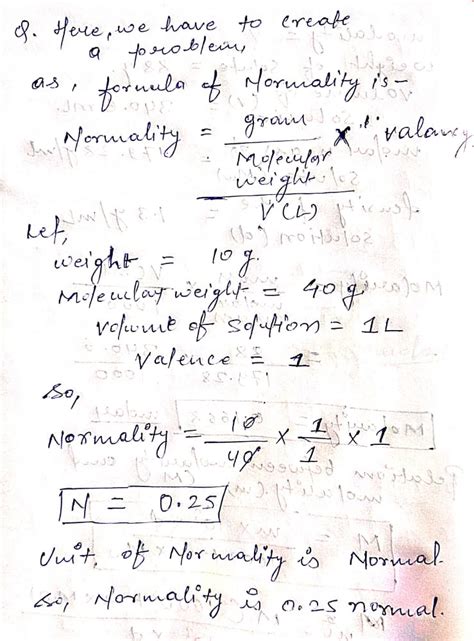 Q. Here, we have to create
a problem,
as, formula of Normality is -
Normality = gram × valancy
Molecular
weight
V (L)
Let,
weight = 10 g.
Molecular weight = 40 g
Volume of Solution = 1 L
Valence = 1
So,
Normality = 10/40 × 1/1 × 1
N = 0.25
Unit of Normality is Normal.
So, Normality is 0.25 normal.